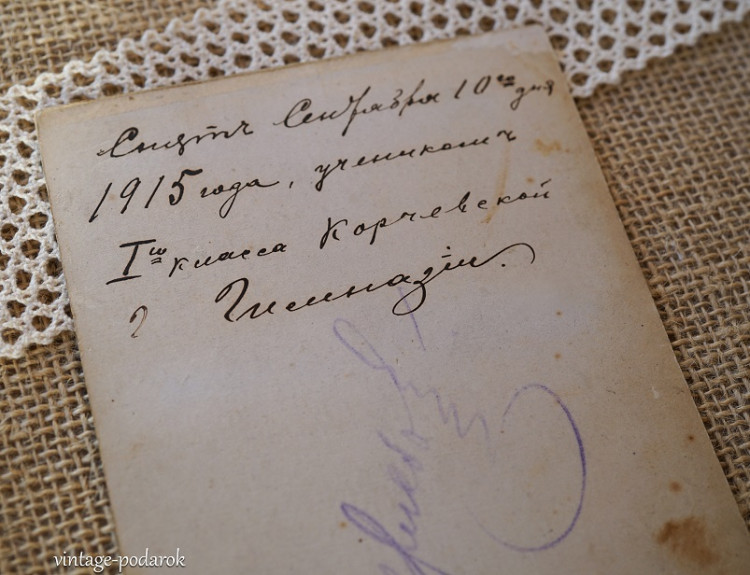 Снятъ Сентября 10го дня
1915 года, ученикомъ
Iго класса Корчевской
Гимназіи.
vintage-podarok